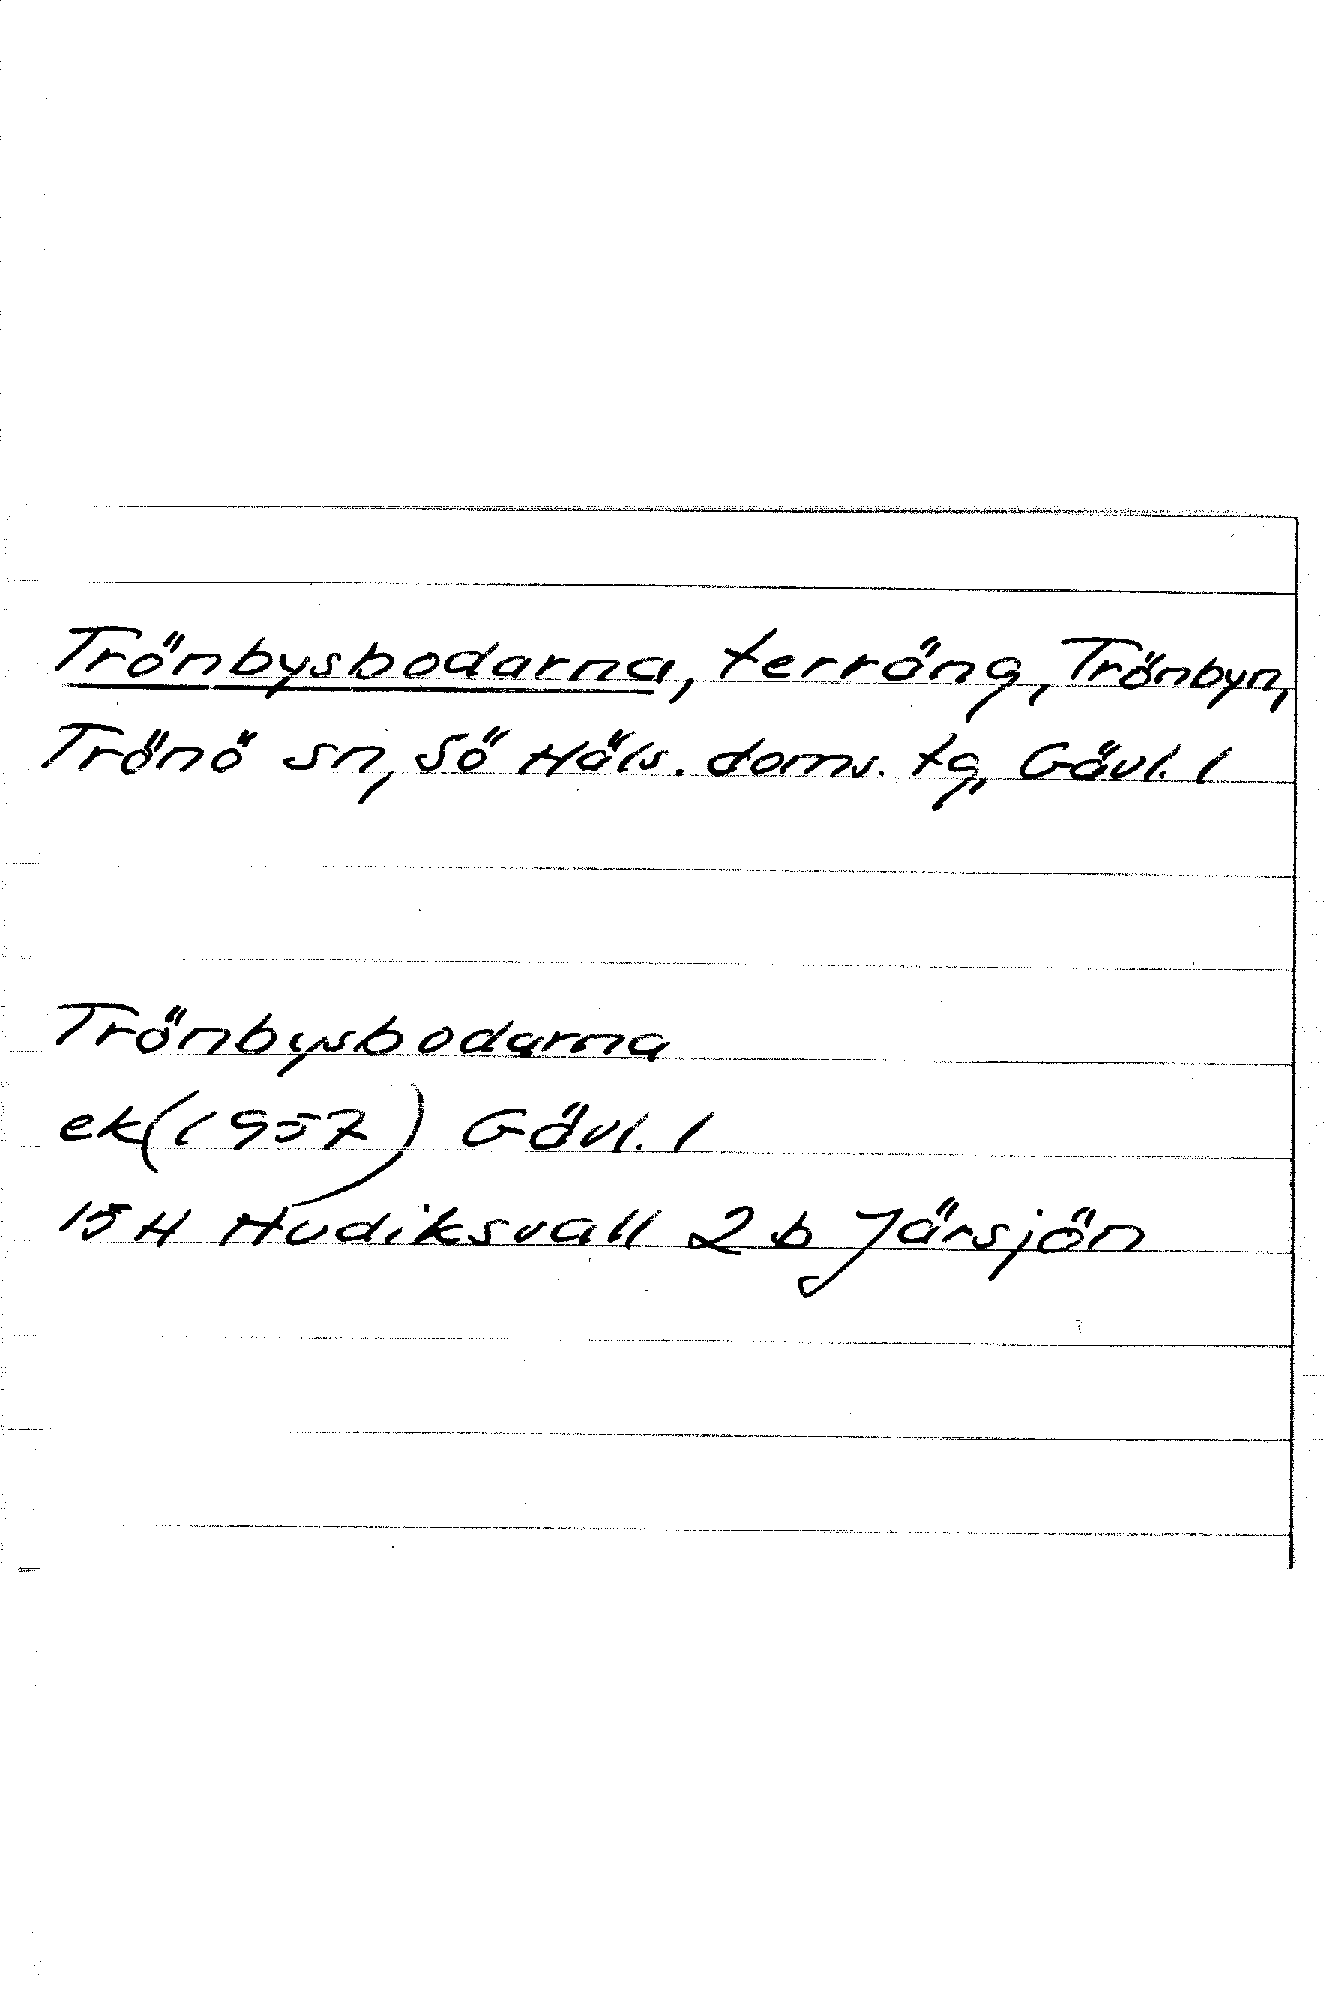 Trönbysbodarna, terräng, Trönbyn,
Trönö sn, Sö Häls. doms. tg, Gävl. l
Trönbysbodarna
ek(1957) Gävl. l
15 H Hudiksvall 2 b Järsjön